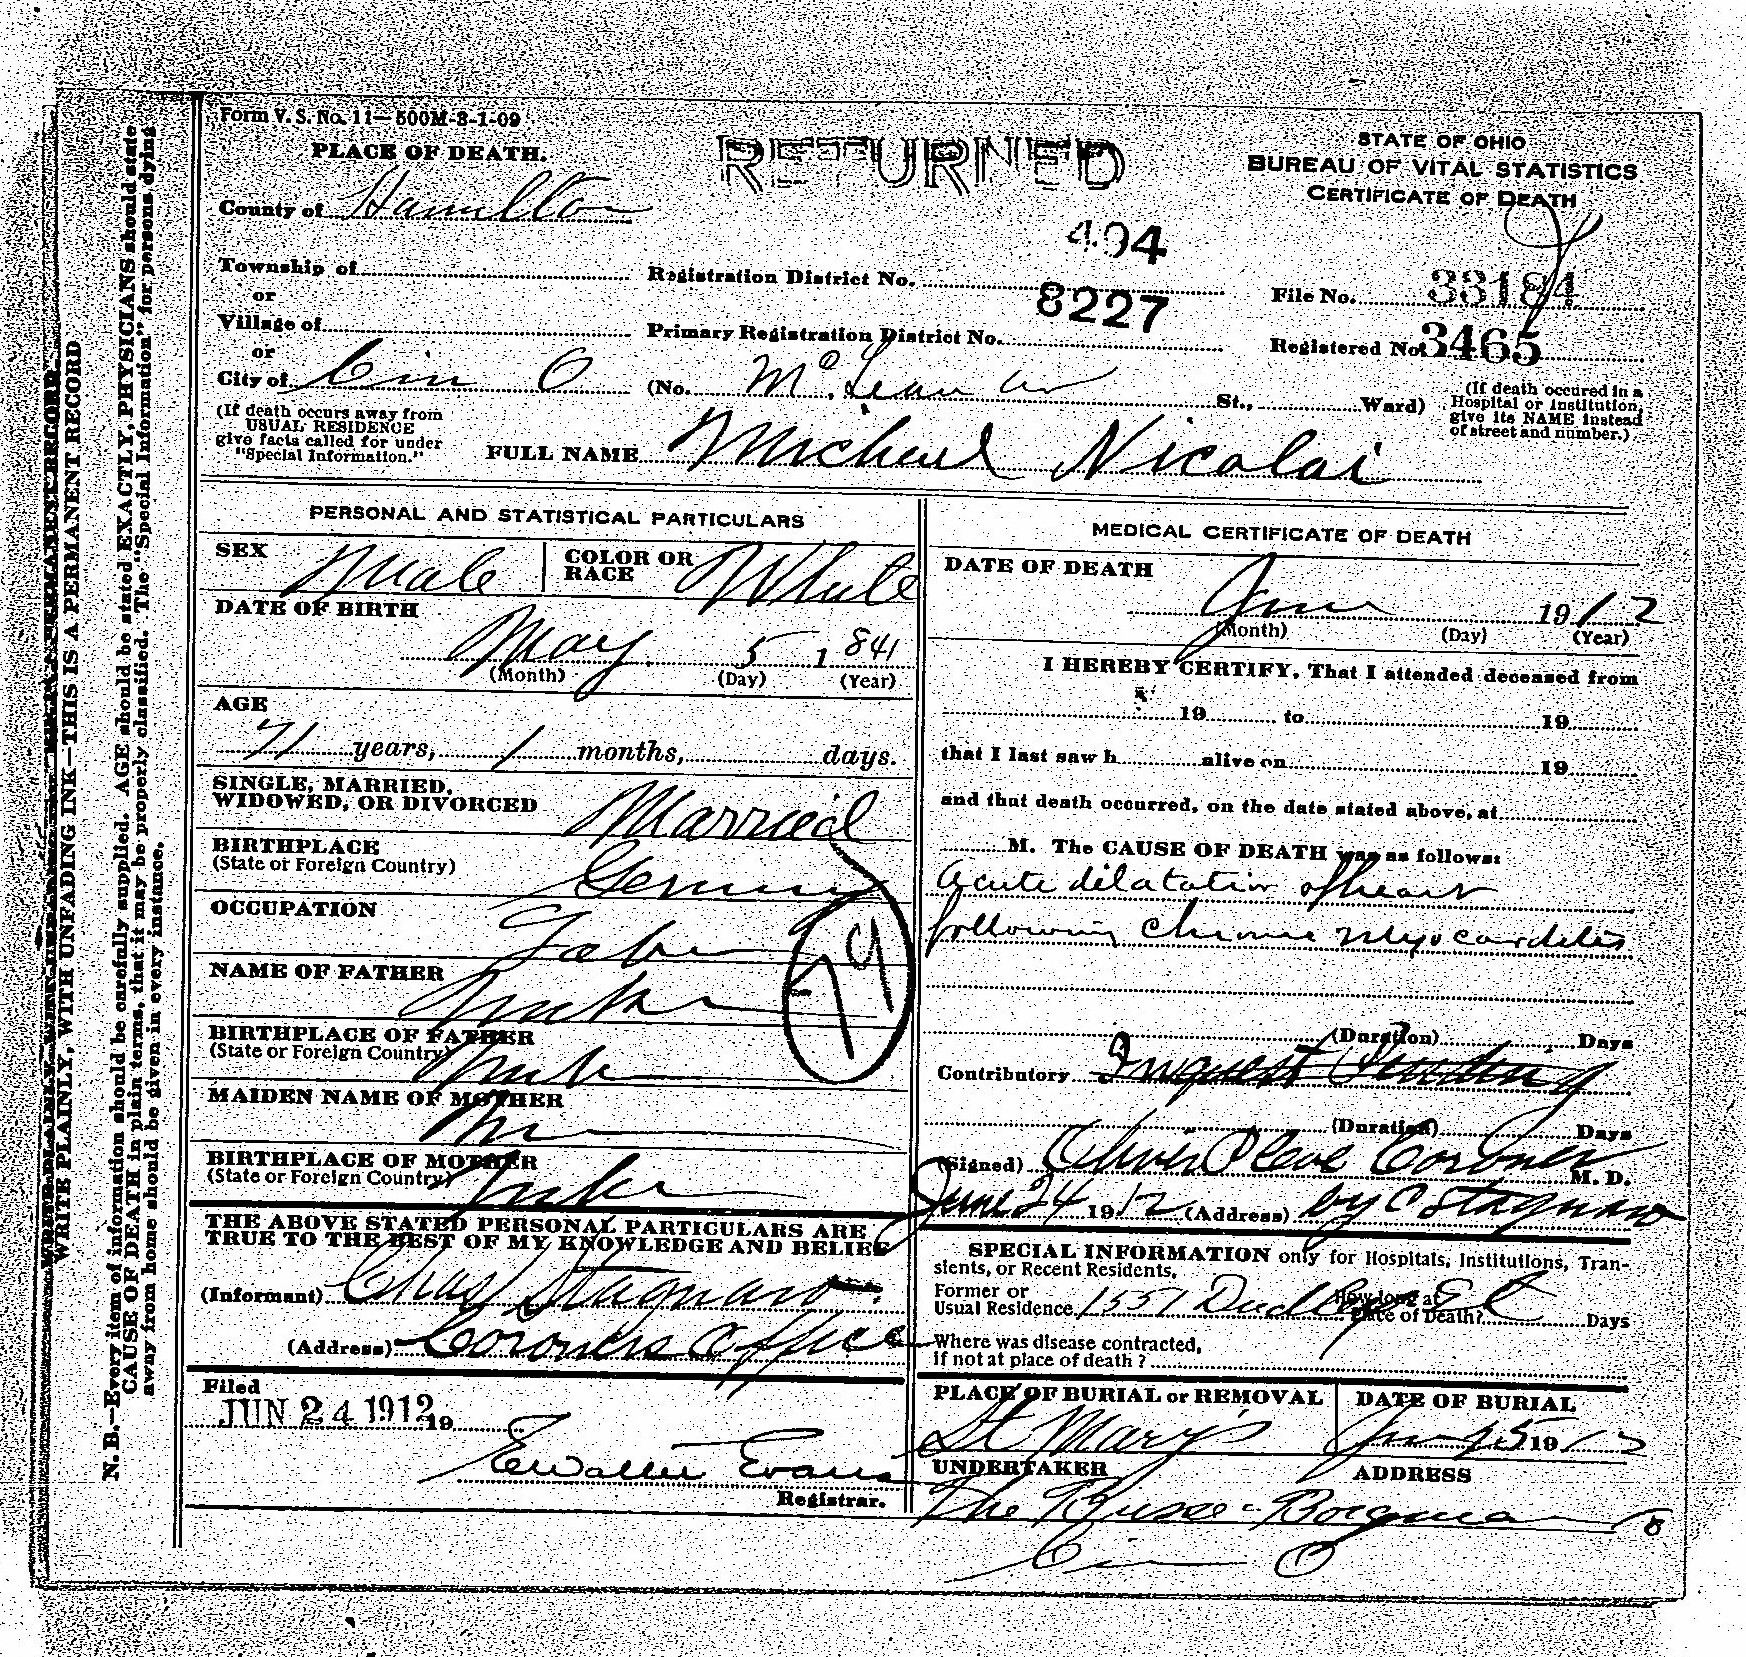 Form V. S. No. 11—500M-3-1-09
PLACE OF DEATH.
RETURNED
STATE OF OHIO
BUREAU OF VITAL STATISTICS
CERTIFICATE OF DEATH
County of Hamilton
Township of
Registration District No. 494
File No. 33184
or
Village of
Primary Registration District No. 8227
Registered No. 3465
or
City of Cin O (No. McLean av St., Ward)
(If death occured in a
Hospital or Institution,
give its NAME instead
of street and number.)
(If death occurs away from
USUAL RESIDENCE
give facts called for under
"Special Information."
FULL NAME Michael Nicolai
PERSONAL AND STATISTICAL PARTICULARS
SEX Male
COLOR OR
RACE White
DATE OF BIRTH
May 5 1841
(Month) (Day) (Year)
AGE
71 years, 1 months, days.
SINGLE, MARRIED,
WIDOWED, OR DIVORCED Married
BIRTHPLACE
(State or Foreign Country) Germany
OCCUPATION
NAME OF FATHER
BIRTHPLACE OF FATHER
(State or Foreign Country)
MAIDEN NAME OF MOTHER
BIRTHPLACE OF MOTHER
(State or Foreign Country)
79
THE ABOVE STATED PERSONAL PARTICULARS ARE
TRUE TO THE BEST OF MY KNOWLEDGE AND BELIEF
(Informant) Chas Stagnaro
(Address) Coroners Office
Filed
JUN 24 1912 19
Registrar. Evans
MEDICAL CERTIFICATE OF DEATH
DATE OF DEATH
June 1912
(Month) (Day) (Year)
I HEREBY CERTIFY, That I attended deceased from
19 to 19
that I last saw h alive on 19
and that death occurred, on the date stated above, at
M. The CAUSE OF DEATH was as follows:
Acute dilatation of heart
following chronic myocarditis
(Duration) Days
Contributory Inquest Pending
(Duration) Days
(Signed) Coroner M. D.
June 24 1912 (Address) by C Stagnaro
SPECIAL INFORMATION only for Hospitals, Institutions, Tran-
sients, or Recent Residents.
Former or
Usual Residence 1551 Dudley St
How long at
Place of Death? Days
Where was disease contracted,
if not at place of death ?
PLACE OF BURIAL or REMOVAL
St Mary's
DATE OF BURIAL
June 25 1912
UNDERTAKER
ADDRESS
The Busse-Borgman Co
Cin O
WRITE PLAINLY, WITH UNFADING INK—THIS IS A PERMANENT RECORD
N. B.—Every item of information should be carefully supplied. AGE should be stated EXACTLY, PHYSICIANS should state
CAUSE OF DEATH in plain terms, that it may be properly classified. The "Special Information" for persons dying
away from home should be given in every instance.